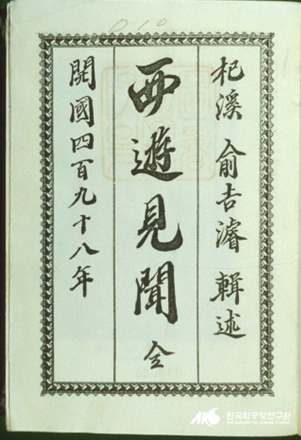 杞溪 俞吉濬 輯述
西遊見聞 全
開國四百九十八年
AKS 한국학중앙연구원
THE ACADEMY OF KOREAN STUDIES